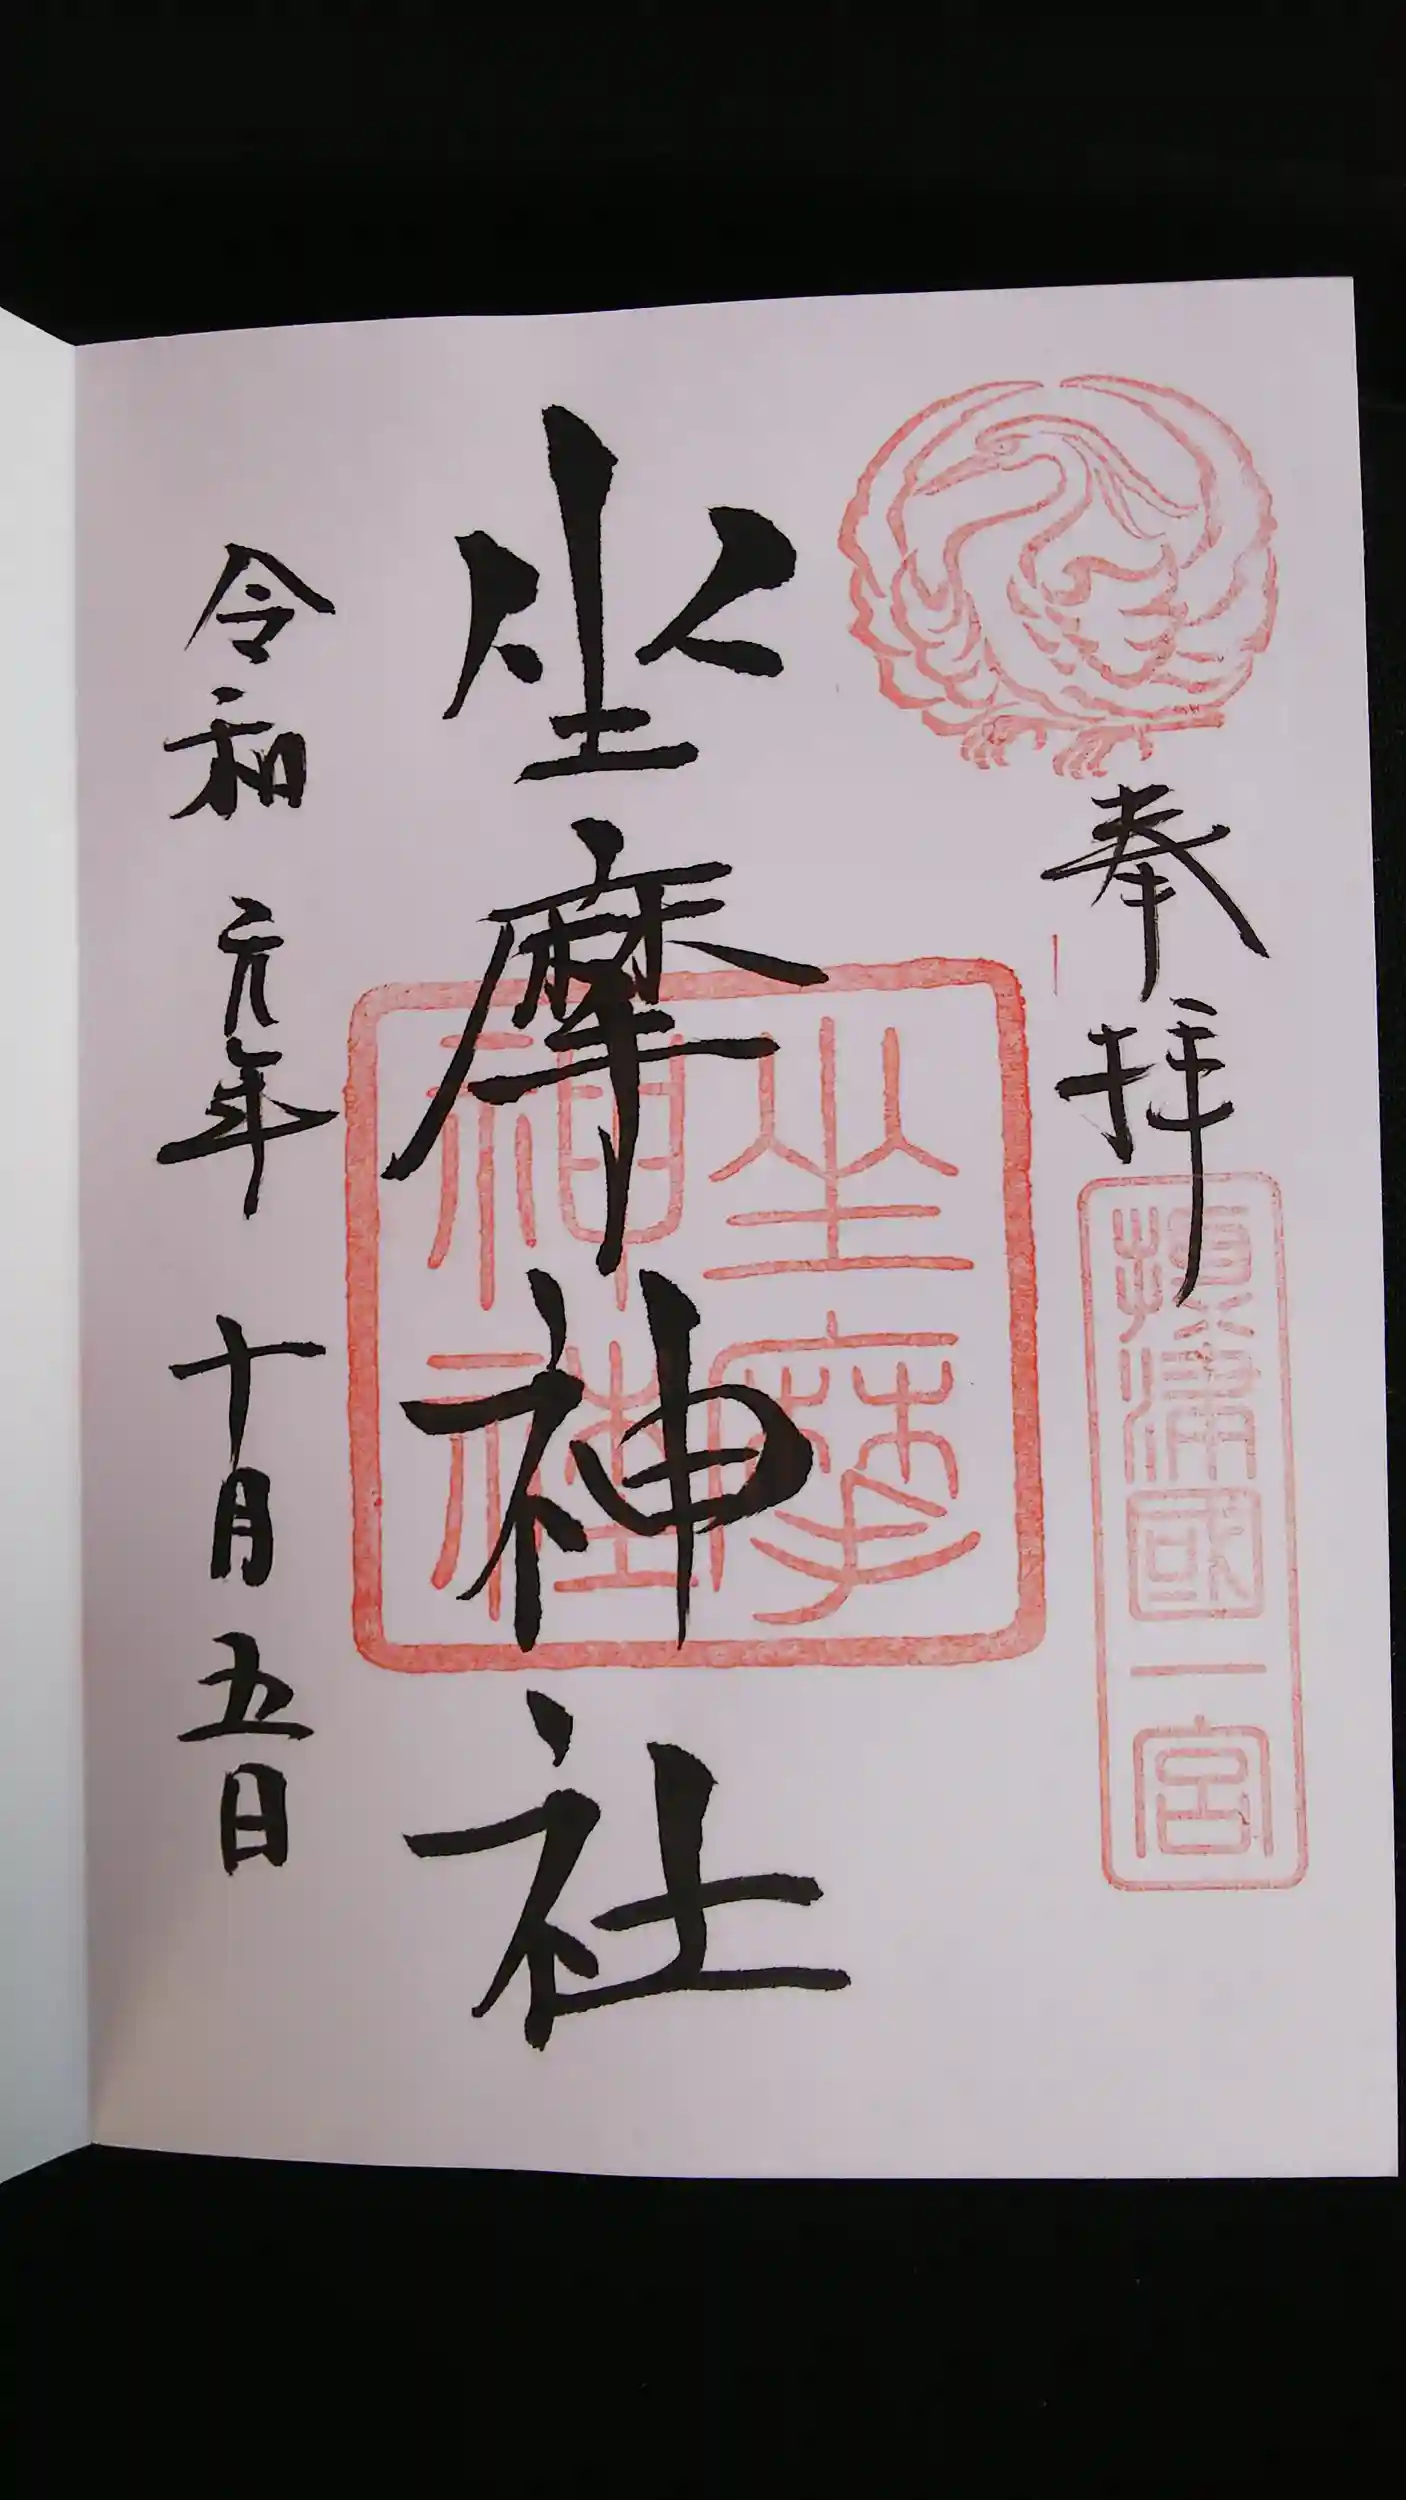 奉拝
摂津國一宮
坐摩神社
坐摩神社
令和元年十月五日